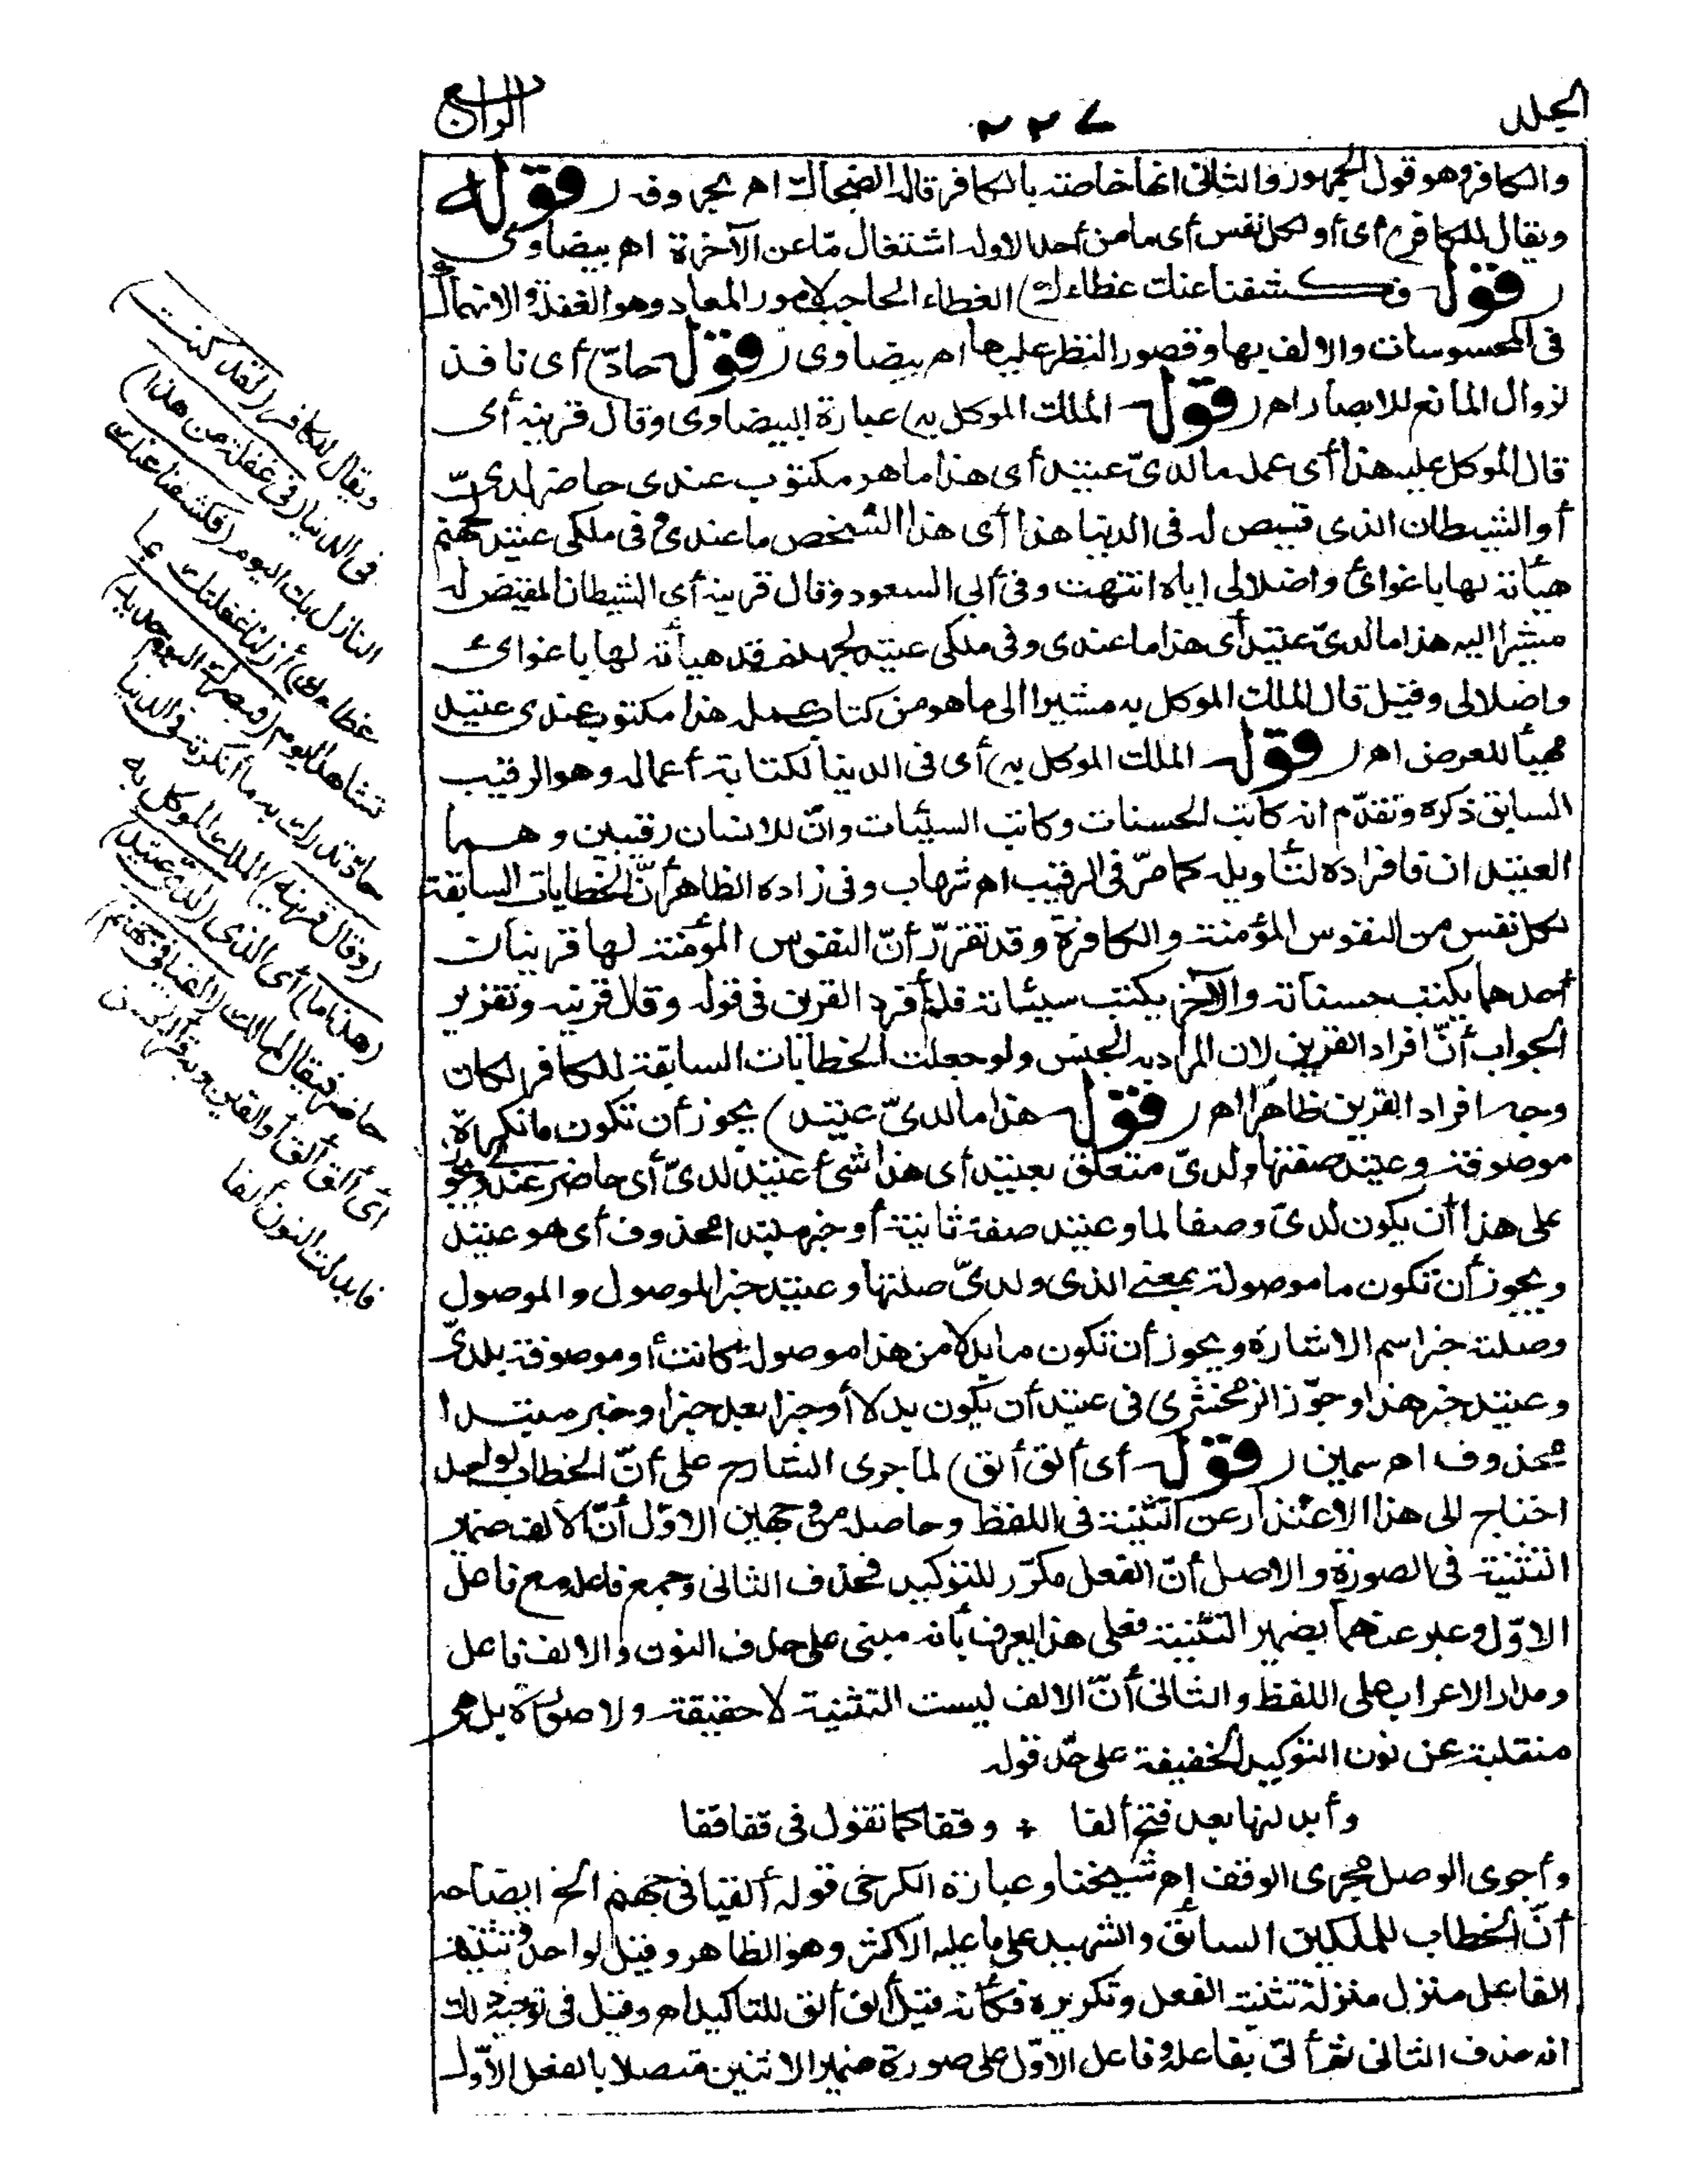 المجلد
٢٢٧
الرابع
والكافر وهو قول الجمهور والثاني انها خاصة بالكافر قاله الضحاك اه بحروفه (قوله
ويقال للكافر) أى أو لكل نفس أى ما من أحد الا وله اشتغال مّا عن الآخرة اه بيضاوى
(قوله فكشفنا عنك غطاءك) الغطاء الحاجب لامور المعاد وهو الغفلة والانهماك
فى المحسوسات والالف بها وقصور النظر عليها اه بيضاوى (قوله حادّ) أى نافذ
لزوال المانع للابصار اه (قوله الملك الموكل به) عبارة البيضاوى وقال قرينه أى
قال الموكل عليه هذا أى عمله ما لدىّ عتيد أى هذا ما هو مكتوب عندى حاضر لدىّ
أو الشيطان الذى قيض له فى الدنيا هذا أى هذا الشخص ما عندى وفى ملكى عتيد لجهنم
هيأته لها باغوائى واضلالى اياه انتهت وفى أبى السعود وقال قرينه أى الشيطان المقيض له
مشيرا اليه هذا ما لدىّ عتيد أى هذا ما عندى وفى ملكى عتيد لجهنم قد هيأته لها باغوائى
واضلالى وقيل قال الملك الموكل به مشيرا الى ما هو من كتاب عمله هذا مكتوب عندى عتيد
مهيأ للعرض اه (قوله الملك الموكل به) أى فى الدنيا لكتابة أعماله وهو الرقيب
السابق ذكره وتقدّم انه كاتب الحسنات وكاتب السيئات وانّ للانسان رقيبين وهما
العتيدان فافراده لتأويله كما مرّ فى الرقيب اه شهاب وفى زاده الظاهر أنّ الخطابات السابقة
لكل نفس من النفوس المؤمنة والكافرة وقد تقرّر أنّ النفوس المؤمنة لها قرينان
أحدهما يكتب حسناته والآخر يكتب سيئاته فلم أفرد القرين فى قوله وقال قرينه وتقرير
الجواب أنّ افراد القرين لان المراد به الجنس ولو جعلت الخطابات السابقة للكافر لكان
وجه افراد القرين ظاهرا اه (قوله هذا ما لدىّ عتيد) يجوز أن تكون ما نكرة
موصوفة وعتيد صفتها ولدىّ متعلق بعتيد أى هذا شئ عتيد لدىّ أى حاضر عندى ويجوز
على هذا أن يكون لدىّ وصفا لما وعتيد صفة ثانية أو خبر مبتدا محذوف أى هو عتيد
ويجوز أن تكون ما موصولة بمعنى الذى ولدىّ صلتها وعتيد خبر الموصول والموصول
وصلته خبر اسم الاشارة ويجوز أن تكون ما بدلا من هذا موصولة كانت أو موصوفة بلدىّ
وعتيد خبر هذا وجوّز الزمخشرى فى عتيد أن يكون بدلا أو خبرا بعد خبر أو خبر مبتدا
محذوف اه سمين (قوله أى ألق ألق) لما جرى الشارح على أنّ الخطاب لواحد
احتاج الى هذا الاعتذار عن التثنية فى اللفظ وحاصله من وجهين الاوّل أنّ الالف ضمير
التثنية فى الصورة والاصل أنّ الفعل مكرّر للتوكيد فحذف الثانى وجمع فاعله مع فاعل
الاوّل وعبر عنهما بضمير التثنية فعلى هذا يعرف بأنه مبنى على حذف النون والالف فاعل
ومدار الاعراب على اللفظ والثانى أنّ الالف ليست التثنية لا حقيقة ولا صورة بل هى
منقلبة عن نون التوكيد الخفيفة على حدّ قوله
وأبدلنها بعد فتح ألفا + وقفا كما تقول فى قفا قفا
وأجرى الوصل مجرى الوقف اه شيخنا وعبارة الكرخى قوله ألقيا فى جهنم الخ ايضاحه
أنّ الخطاب للملكين السائق والشهيد على ما عليه الاكثر وهو الظاهر وقيل لواحد وتثنية
الفاعل منزل منزلة تثنية الفعل وتكريره فكأنه قيل ألق ألق للتاكيد اه وقيل فى توجيه ذلك
انه حذف الثانى ثم أتى بفاعله وفاعل الاوّل على صورة ضمير الاثنين متصلا بالفعل الاوّل
ويقال للكافر (لقد كنت)
فى الدنيا (فى غفلة من هذا)
النازل بك اليوم (فكشفنا عنك
غطاءك) أزلنا غفلتك بما
تشاهده اليوم (فبصرك اليوم حديد)
حادّ تدرك به ما أنكرته فى الدنيا
(وقال قرينه) الملك الموكل به
(هذا ما) أى الذى (لدىّ عتيد)
حاضر فيقال لمالك (ألقيا فى جهنم)
أى ألق ألق أو ألقين وبه قرأ الحسن
فابدلت النون ألفا